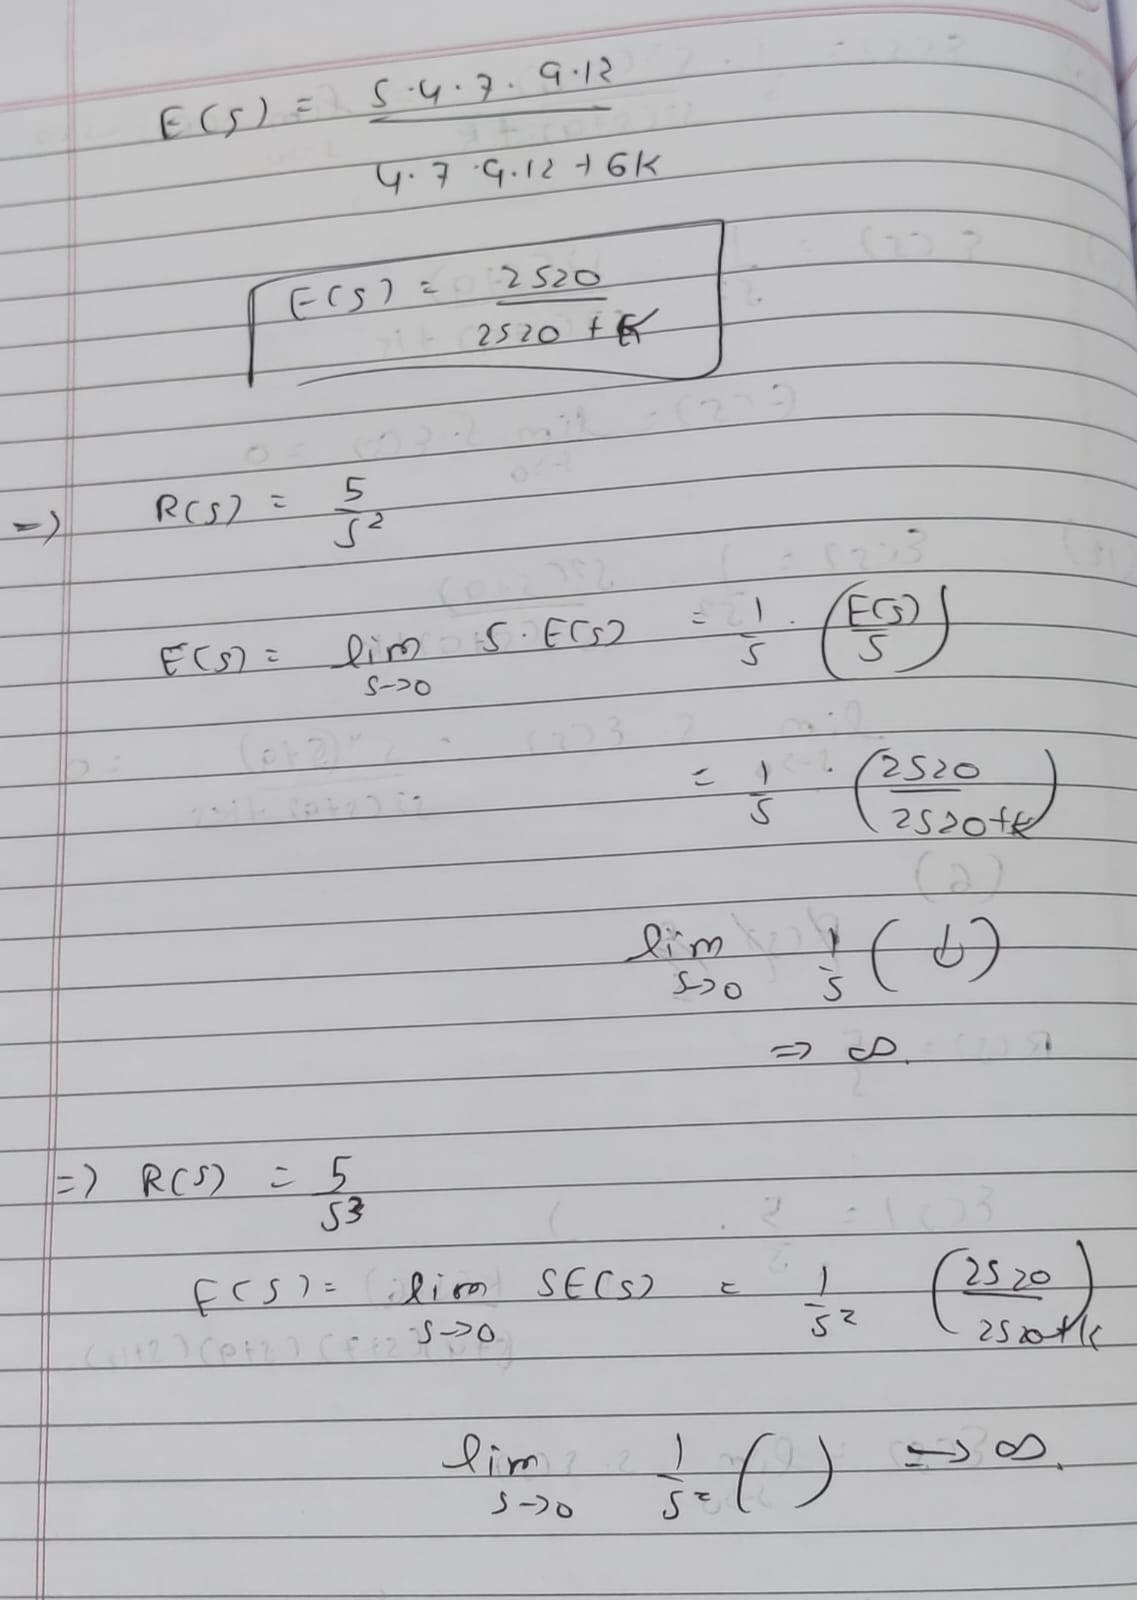 E(s) = 5·4·7·9·12
4·7·9·12 + 6K
E(s) = 2520
2520 + K
=> R(s) = 5
s²
E(s) = lim s→0 s·E(s) = 1/s · (E(s)/s)
= 1/s · (2520/2520+K)
lim s→0 1/s ( )
=> ∞.
=> R(s) = 5
s³
E(s) = lim s→0 sE(s) = 1/s² (2520/2520+K)
lim s→0 1/s² ( ) → ∞.